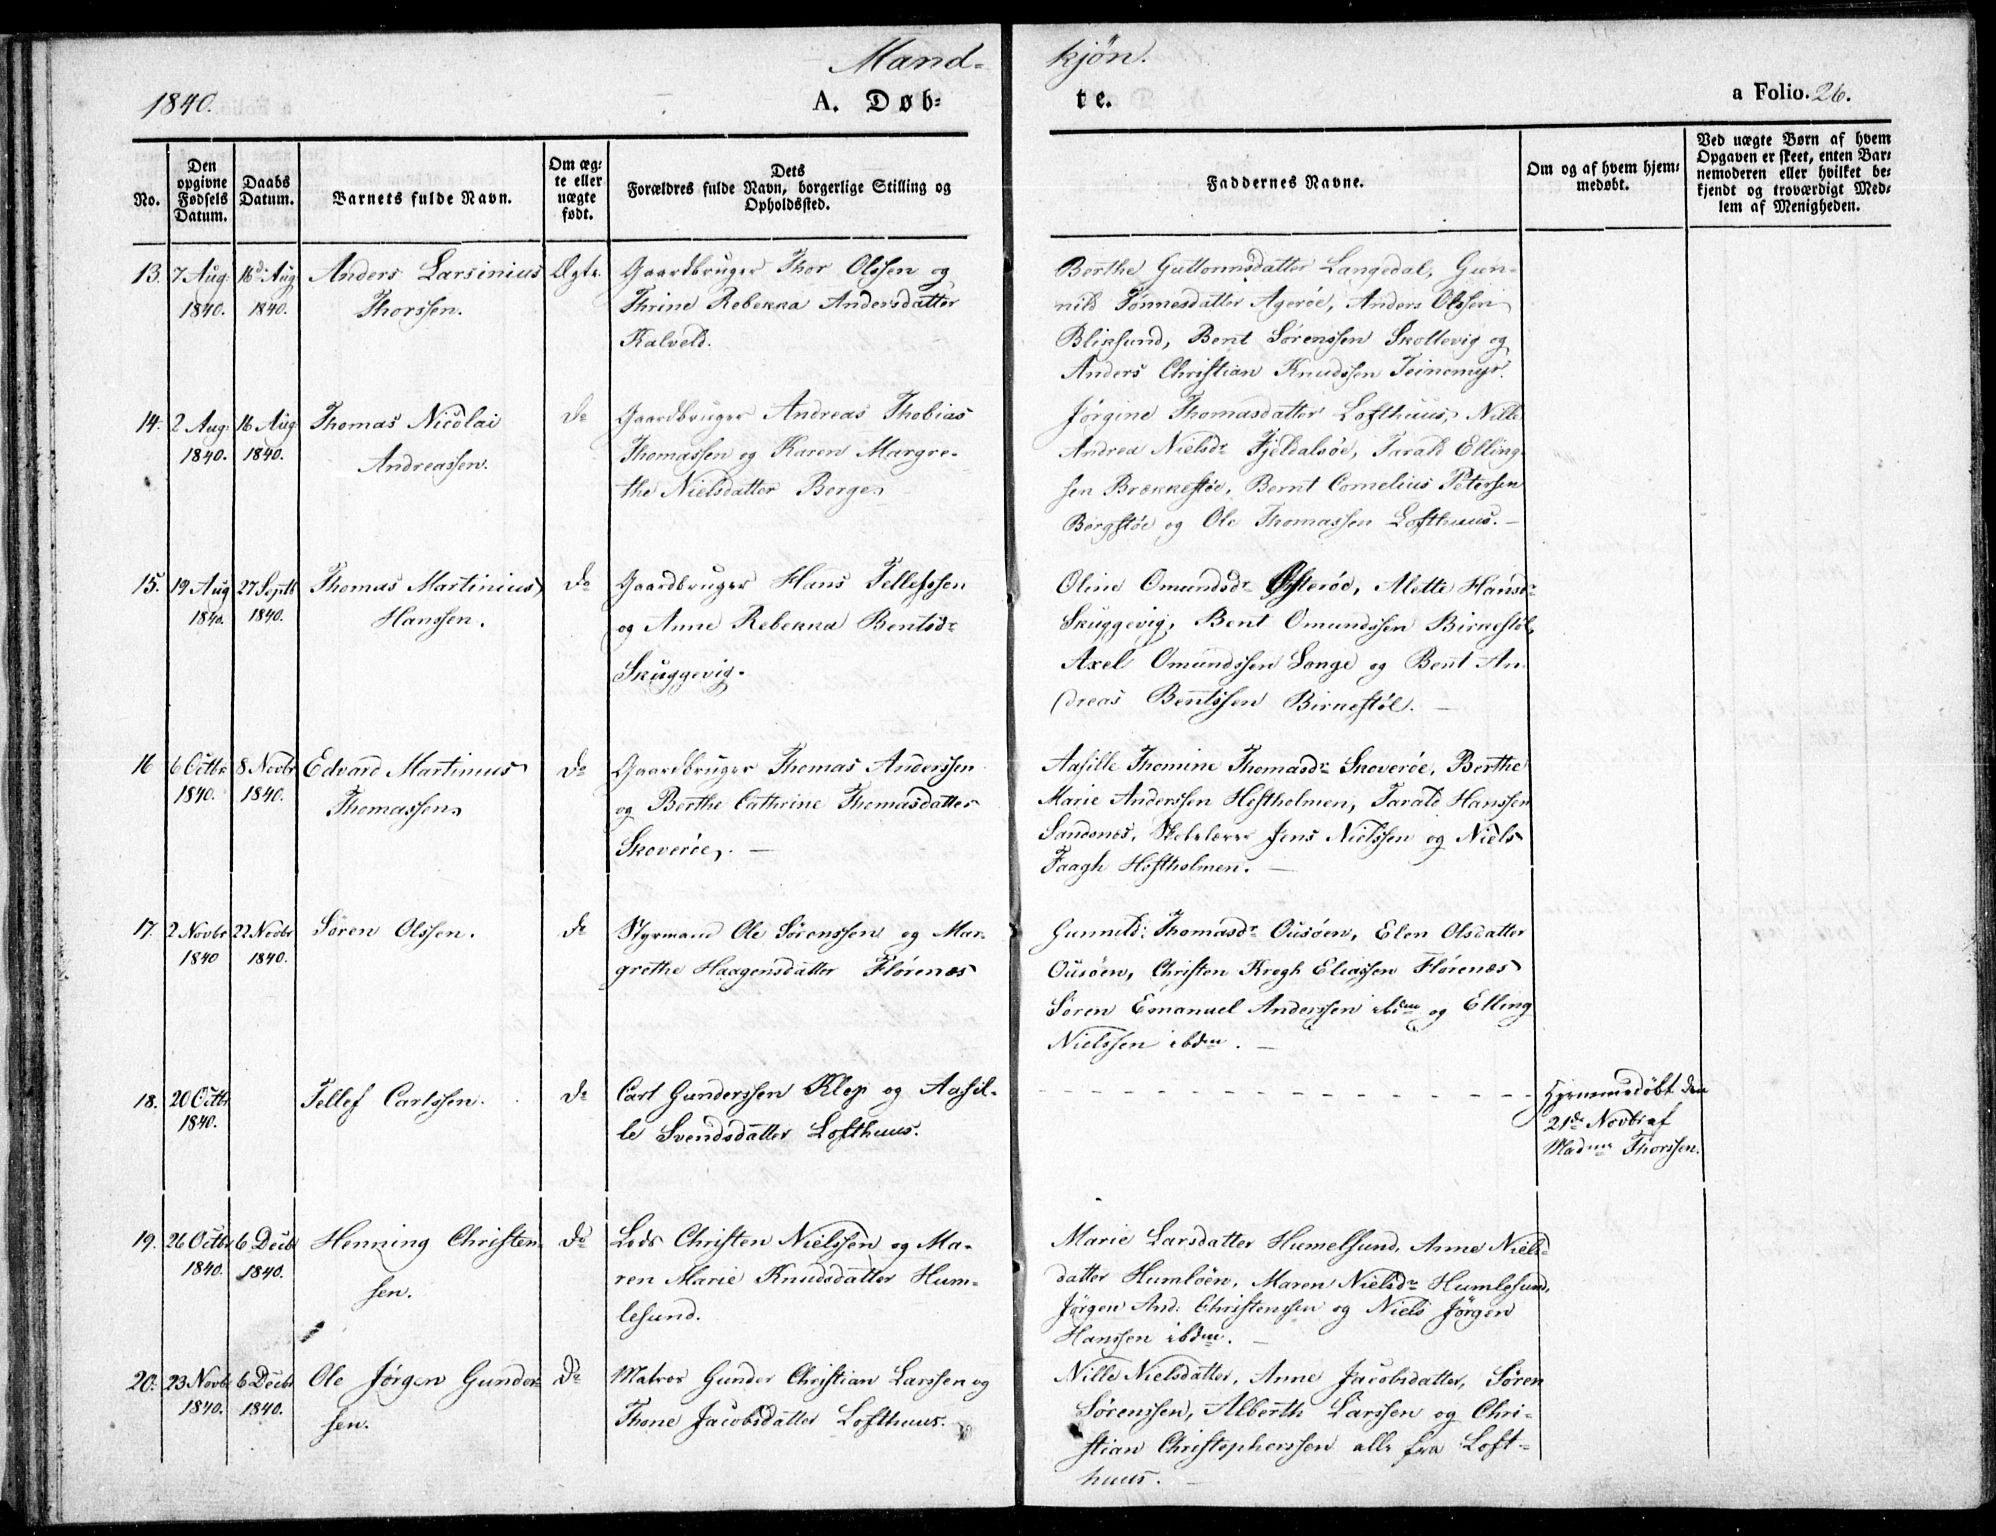 Mand-
kjøn.
1840.
A. Døb-
te.
a Folio. 26.
No.
Den opgivne Fødsels Datum.
Daabs Datum.
Barnets fulde Navn.
Om æg-
te eller
uægte
født.
Dets
Forældres fulde Navn, borgerlige Stilling og
Opholdssted.
Faddernes Navne.
Om og af hvem hjem-
medøbt.
Ved uægte Børn af hvem
Opgaven er skeet, enten Bar-
nemoderen eller hvilket be-
kjendt og troværdigt Med-
lem af Menigheden.
13. 7 Aug. 16de Aug Anders Larsinius Ægte. Gaardbruger Thor Olssen og
1840. 1840. Thorssen. Thrine Rebekka Andersdatter
Kalveld.
Berthe Guttormsdatter Langedal, Gun-
nild Tønnesdatter Agerøe, Anders Olssen
Bliksund, Bent Sørenssen Skottevig og
Anders Christian Knudssen Teinemyr.
14. 2 Aug. 16 Aug Thomas Nicolai do Gaardbruger Andreas Thobias
1840. 1840. Andreassen. Thomassen og Karen Margre-
the Nielsdatter Berge
Jørgine Thomasdatter Lofthuus, Nille
Andrea Nielsdr Fjeldalsøe, Tarald Elling-
sen Brækkestøe, Bernt Cornelius Petersen
Bergstøe og Ole Thomassen Lofthuus. -
15. 19 Aug 27 Septb Thomas Martinius do Gaardbruger Hans Tellefssen
1840. 1840. Hanssen. og Anne Rebekka Bentsdr
Skuggevig.
Oline Omundsdr Østerøe, Mette Hansdr
Skuggevig, Bent Omundssen Birkestøl,
Axel Omundssen Lange og Bent An-
dreas Bentssen Birkestøl. -
16 6 Octbr 8 Novbr Edvard Martinius do Gaardbruger Thomas Anderssen
1840. 1840. Thomassen og Berthe Cathrine Thomasdatter
Skoverøe. -
Aasille Thomine Thomasdr Skoverøe, Berthe
Marie Anderssen Hestholmen, Tarald Hanssen
Sandnes, Skolelærer Jens Nielssen og Niels
Faagh Hestholmen. -
17. 2 Novbr 22 Novbr Søren Olssen. do Styrmand Ole Sørenssen og Mar-
1840 1840. grethe Haagensdatter Flørenæs
Gunnild Thomasdr Ousøen, Elen Olsdatter
Ousøen, Christen Krogh Eliassen Flørenæs
Søren Emanuel Anderssen ibdm og Elling
Nielssen ibdm. -
18. 20 Octbr Tellef Carlssen. do Carl Gunderssen Klep og Aasil-
1840. le Svendsdatter Lofthuus.
Hjemmedøbt den
21de Novbr af
Madme Thorssen.
19. 26 Octbr 6 Decbr Henning Christen- do Lods Christen Nielssen og Ma-
1840. 1840. sen. ren Marie Knudsdatter Hum-
lesund.
Marie Larsdatter Humelsund, Anne Niels-
datter Humløen, Maren Nielsdr Humlesund,
Jørgen And: Christenssen og Niels Jørgen
Hanssen ibdm. -
20. 23 Novbr 6 Decbr Ole Jørgen Gunder- do Matros Gunder Christian Larssen og
1840. 1840. sen. Thone Jacobsdatter Lofthuus.
Nille Nielsdatter, Anne Jacobsdatter, Søren
Sørenssen, Alberth Larssen og Chri-
stian Christopherssen alle fra Loft-
huus. -